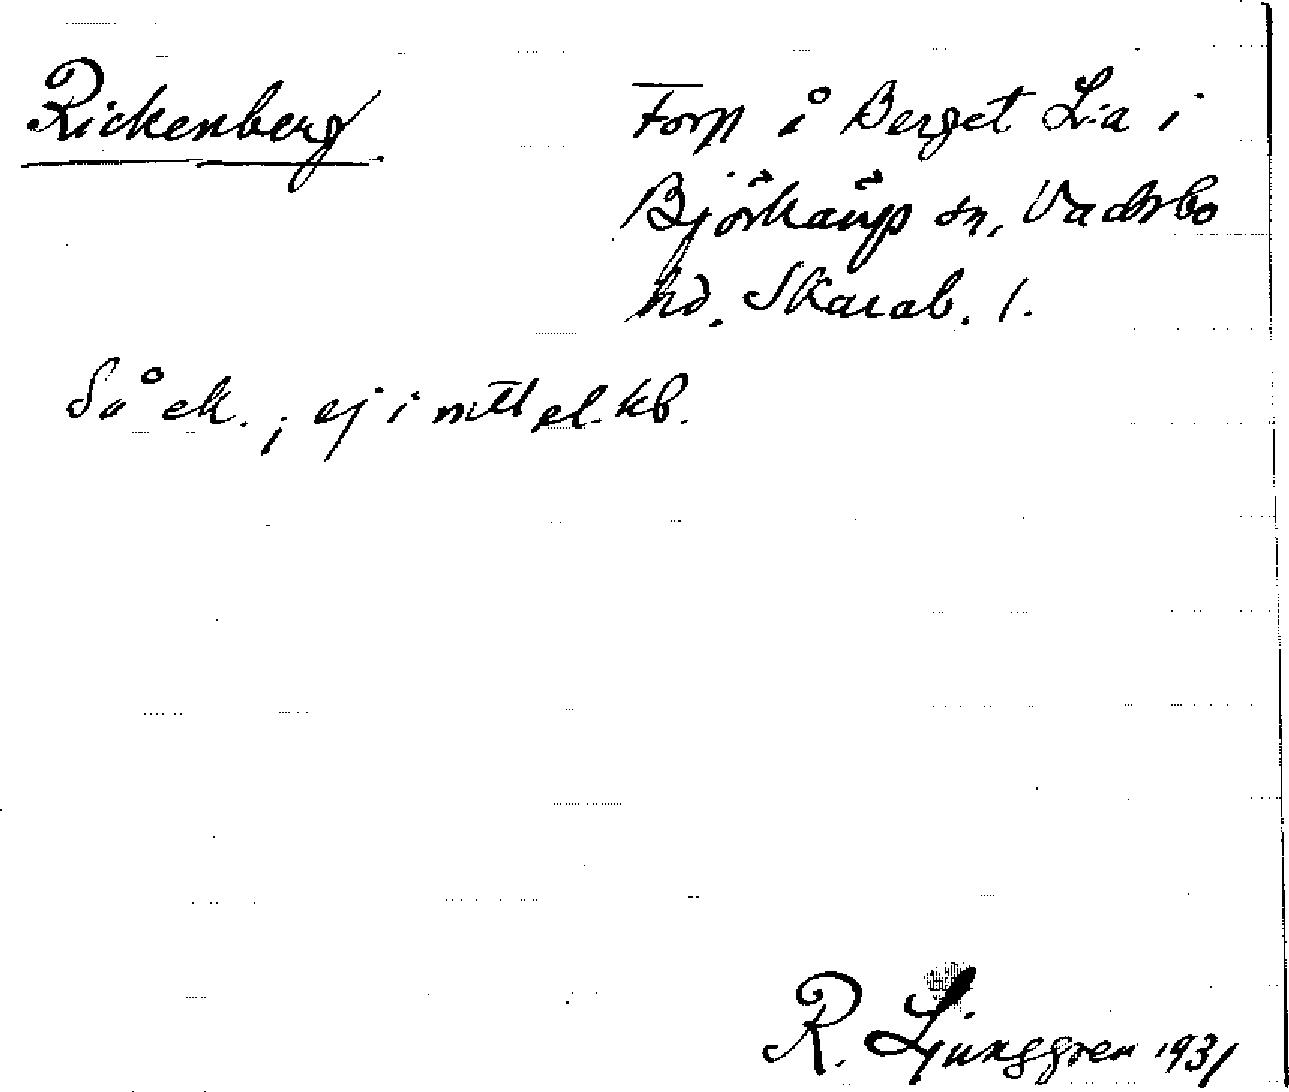 Rickenberg
Torp å Berget L:a i
Björkäng sn, Vadsbo
hd. Skarab. l.
Så ek., ej i mtl el. kb.
R. Ljunggren 1931